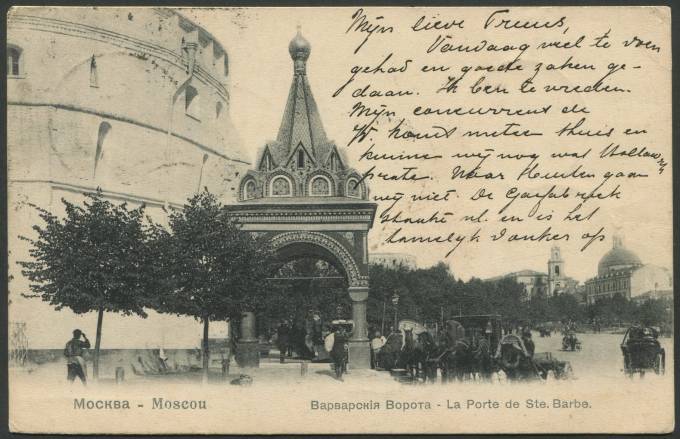 Mijn lieve Truus,
Vandaag veel te doen
gehad en goede zaken ge-
daan. Ik ben te vreden.
Mijn concurrent de
W. komt mee thuis en
kunnen wij nog wat Holland
praten. Naar Heulen gaan
wij niet. De Gasfabriek
staakt nl. en is het
tamelijk donker op
Москва - Moscou
Варварскія Ворота - La Porte de Ste. Barbe.